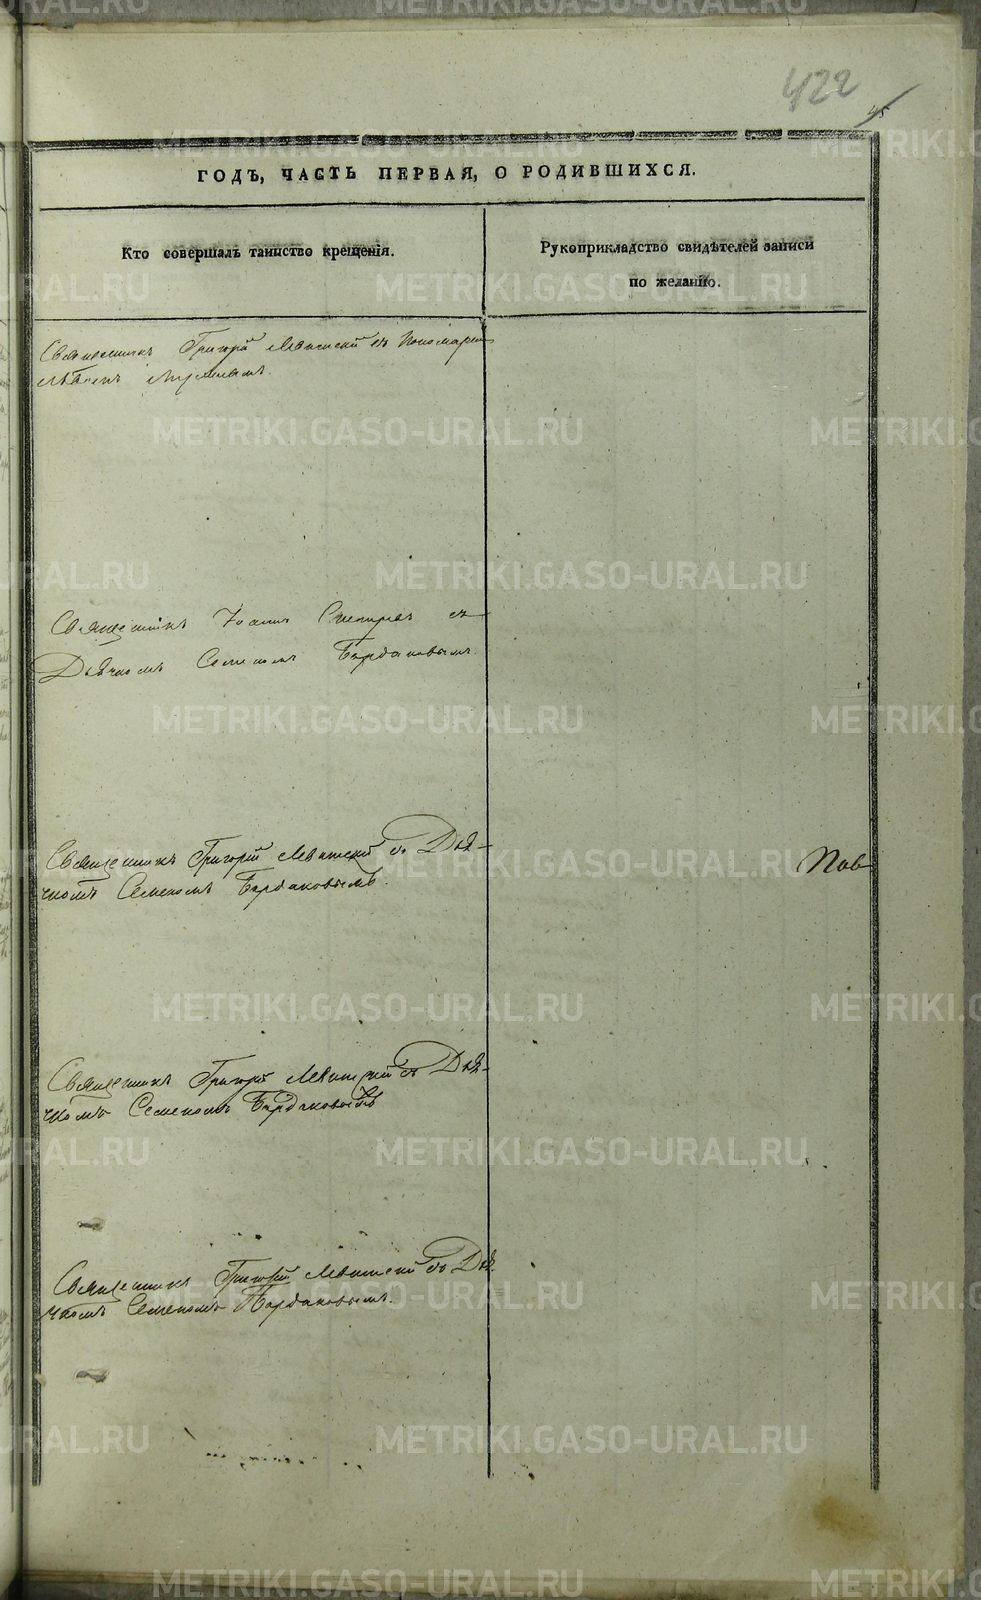 422
45
ГОДЪ, ЧАСТЬ ПЕРВАЯ, О РОДИВШИХСЯ.
Кто совершалъ таинство крещенія.
Рукоприкладство свидѣтелей записи
по желанію.
Священникъ Григорій Левитскій съ Пономаремъ
Священникъ Іоаннъ съ
Дьячкомъ Семеномъ Бурдаковымъ.
Священникъ Григорій Левитскій съ Дья-
чкомъ Семеномъ Бурдаковымъ.
Пав
Священникъ Григорій Левитскій съ Дья-
чкомъ Семеномъ Бурдаковымъ
Священникъ Григорій Левитскій съ Дья-
чкомъ Семеномъ Бурдаковымъ.
METRIKI.GASO-URAL.RU